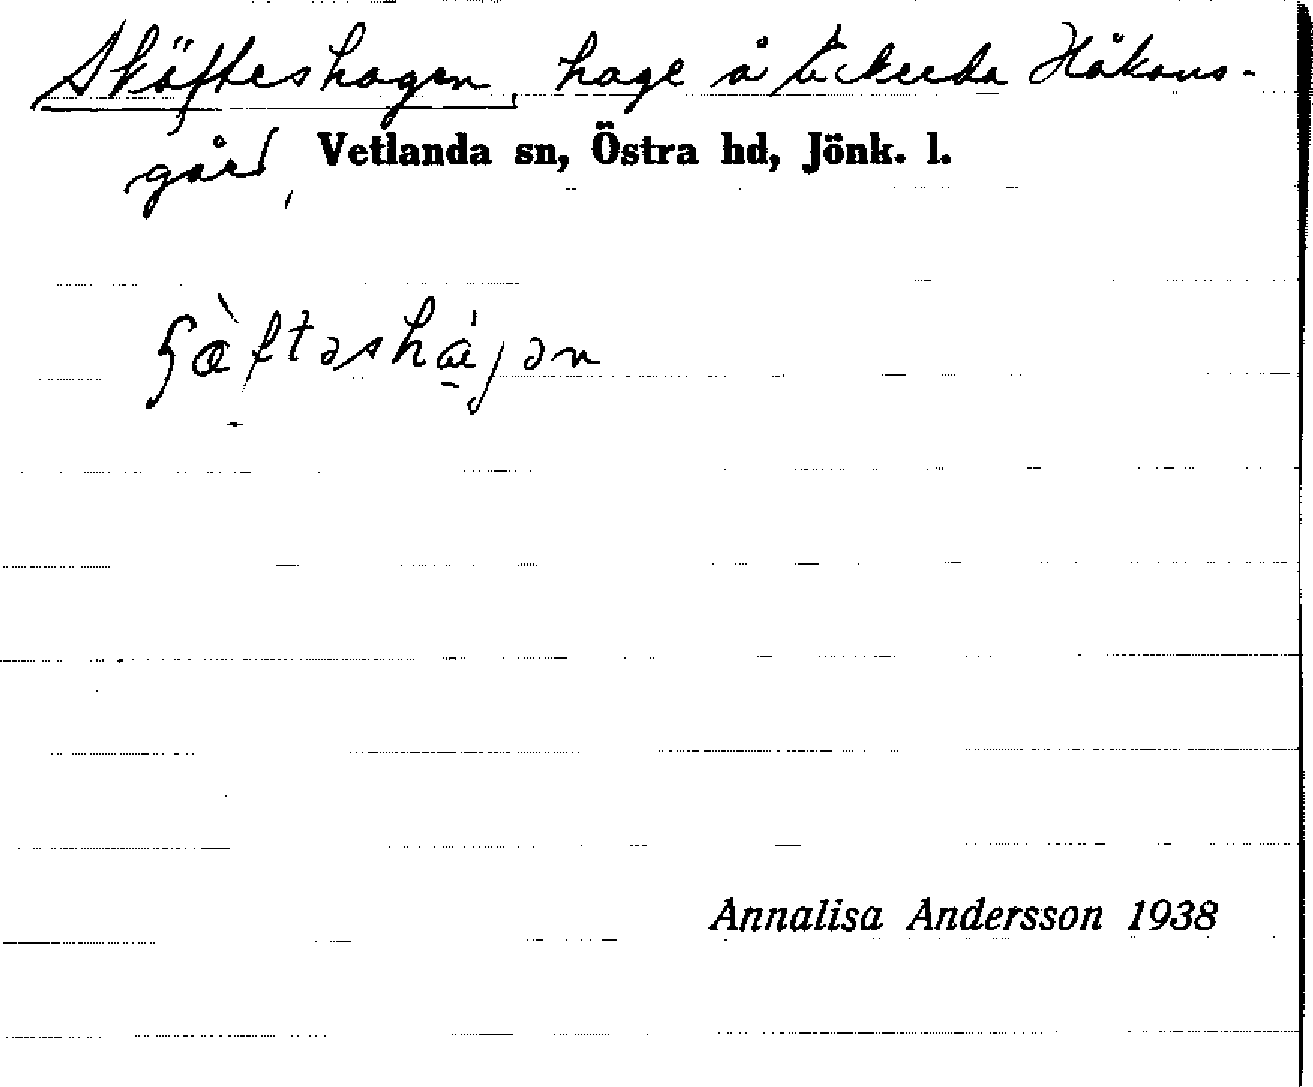 Sköfteshagen, hage å Äckerda Håkans-
gård, Vetlanda sn, Östra hd, Jönk. l.
Annalisa Andersson 1938